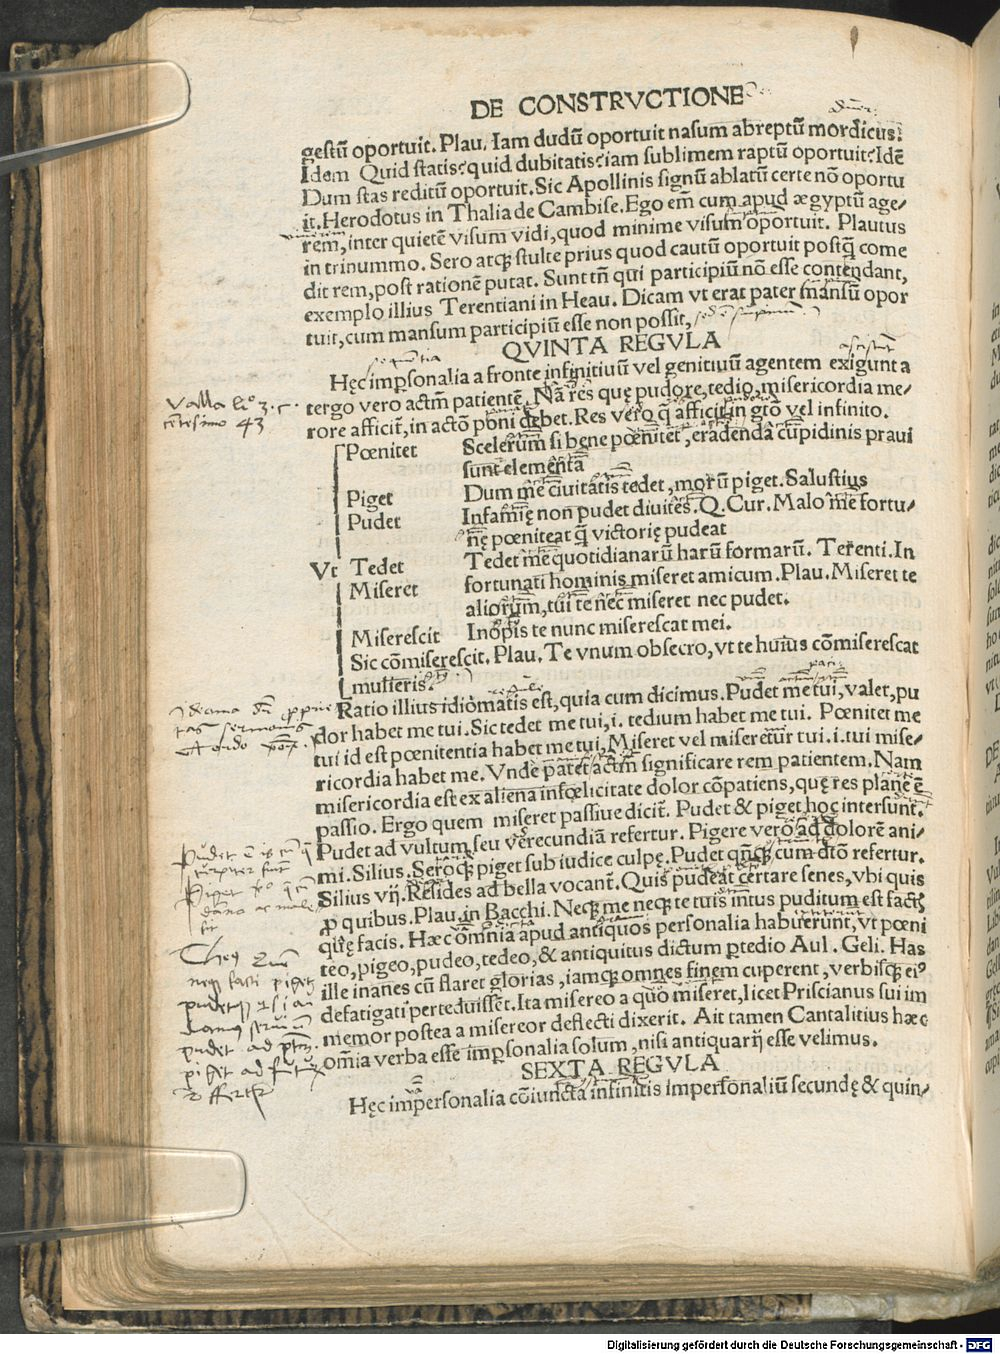 DE CONSTRVCTIONE
gestū oportuit. Plau. Iam dudū oportuit nasum abreptū mordicus.
Idem Quid statis? quid dubitatis? iam sublimem raptū oportuit? Idē
Dum stas reditū oportuit. Sic Apollinis signū ablatū certe nō oportu
it. Herodotus in Thalia de Cambise. Ego em̄ cum apud ægyptū age-
rem, inter quietē visum vidi, quod minime visum oportuit. Plautus
in trinummo. Sero atqꝫ stulte prius quod cautū oportuit postq̄ come
dit rem, post rationē putat. Sunt tn̄ qui participiū nō esse contendant,
exemplo illius Terentiani in Heau. Dicam vt erat pater mansū opor
tuit, cum mansum participiū esse non possit,
QVINTA REGVLA
Hęc imꝑsonalia a fronte infinitiuū vel genitiuū agentem exigunt a
tergo vero actm̄ patientē. Nā res quę pudore, tedio, misericordia me-
rore afficit̄, in actō poni debet. Res vero q̄ afficit in gtō vel infinito.
Pœnitet Scelerum si bene pœnitet, eradenda cupidinis praui
sunt elementa
Piget Dum me ciuitatis tedet, morū piget. Salustius
Pudet Infamię non pudet diuites. Q. Cur. Malo me fortu-
nę pœniteat q̄ victorię pudeat
Vt Tedet Tedet me quotidianarū harū formarū. Terenti. In
Miseret fortunati hominis miseret amicum. Plau. Miseret te
aliorum, tui te nec miseret nec pudet.
Miserescit Inopis te nunc miserescat mei.
Sic cōmiserescit. Plau. Te vnum obsecro, vt te huius cōmiserescat
mulieris.
Ratio illius idiomatis est, quia cum dicimus. Pudet me tui, valet, pu
dor habet me tui. Sic tedet me tui, i. tedium habet me tui. Pœnitet me
tui id est pœnitentia habet me tui, Miseret vel miseretur tui. i. tui mise-
ricordia habet me. Vnde patet actm̄ significare rem patientem. Nam
misericordia est ex aliena infœlicitate dolor cōpatiens, quę res plane ē
passio. Ergo quem miseret passiue dicit̄. Pudet & piget hoc intersunt.
Pudet ad vultum seu verecundiā refertur. Pigere vero ad dolorē ani-
mi. Silius. Seroqꝫ piget sub iudice culpę. Pudet qn̄qꝫ cum dtō refertur.
Silius vij. Resides ad bella vocant̄. Quis pudeat certare senes, vbi quis
ꝓ quibus. Plau. in Bacchi. Neqꝫ me neqꝫ te tuis intus puditum est factꝭ
quę facis. Hæc omnia apud antiquos personalia habuerunt, vt pœni
teo, pigeo, pudeo, tedeo, & antiquitus dictum ꝑtedio Aul. Geli. Has
ille inanes cū flaret glorias, iamqꝫ omnes finem cuperent, verbisqꝫ eiꝰ
defatigati perteduissēt. Ita misereo a quo miseret, licet Priscianus sui im
memor postea a misereor deflecti dixerit. Ait tamen Cantalitius hæc
omīa verba esse imꝑsonalia solum, nisi antiquarij esse velimus.
SEXTA REGVLA
Hęc impersonalia cōiuncta infinitis impersonaliū secundę & quin-
Digitalisierung gefördert durch die Deutsche Forschungsgemeinschaft - DFG